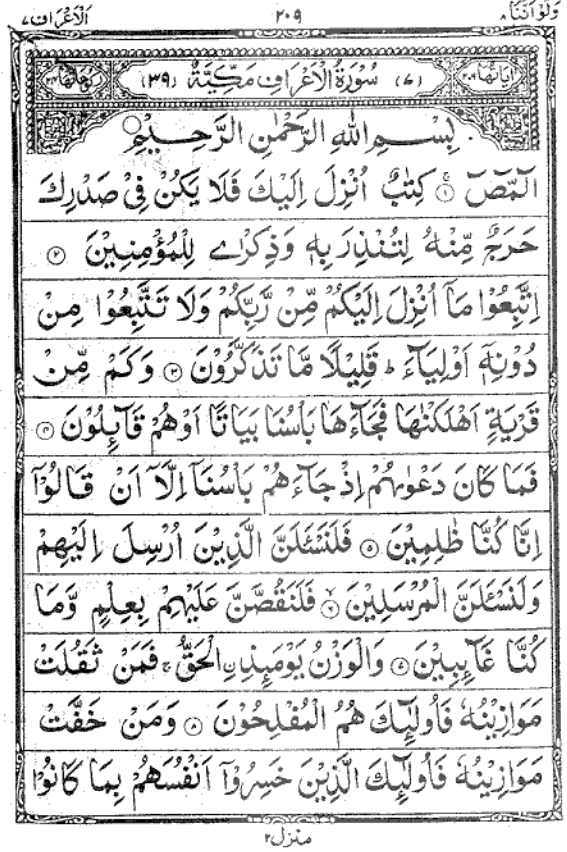 وَلَوْ اَنَّنَا ٨
٢٠٩
اَلْاَعْرَاف ٧
اٰيَاتُهَا ٢٠٦
(٧) سُوْرَةُ الْاَعْرَافِ مَكِّيَّةٌ (٣٩)
رُكُوْعَاتُهَا ٢٤
بِسْمِ اللهِ الرَّحْمٰنِ الرَّحِيْمِ
الٓمّٓصٓ ۚ ١ كِتٰبٌ اُنْزِلَ اِلَيْكَ فَلَا يَكُنْ فِيْ صَدْرِكَ
حَرَجٌ مِّنْهُ لِتُنْذِرَ بِهٖ وَذِكْرٰى لِلْمُؤْمِنِيْنَ ٢
اِتَّبِعُوْا مَاۤ اُنْزِلَ اِلَيْكُمْ مِّنْ رَّبِّكُمْ وَلَا تَتَّبِعُوْا مِنْ
دُوْنِهٖۤ اَوْلِيَآءَ ؕ قَلِيْلًا مَّا تَذَكَّرُوْنَ ٣ وَكَمْ مِّنْ
قَرْيَةٍ اَهْلَكْنٰهَا فَجَآءَهَا بَاْسُنَا بَيَاتًا اَوْ هُمْ قَآئِلُوْنَ ٤
فَمَا كَانَ دَعْوٰىهُمْ اِذْ جَآءَهُمْ بَاْسُنَاۤ اِلَّاۤ اَنْ قَالُوْۤا
اِنَّا كُنَّا ظٰلِمِيْنَ ٥ فَلَنَسْـَٔلَنَّ الَّذِيْنَ اُرْسِلَ اِلَيْهِمْ
وَلَنَسْـَٔلَنَّ الْمُرْسَلِيْنَ ۙ ٦ فَلَنَقُصَّنَّ عَلَيْهِمْ بِعِلْمٍ وَّمَا
كُنَّا غَآئِبِيْنَ ٧ وَالْوَزْنُ يَوْمَئِذِ ِۨالْحَقُّ ۚ فَمَنْ ثَقُلَتْ
مَوَازِيْنُهٗ فَاُولٰٓئِكَ هُمُ الْمُفْلِحُوْنَ ٨ وَمَنْ خَفَّتْ
مَوَازِيْنُهٗ فَاُولٰٓئِكَ الَّذِيْنَ خَسِرُوْۤا اَنْفُسَهُمْ بِمَا كَانُوْا
منزل ٢